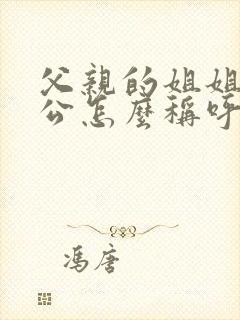 父親的姐姐
公怎麼稱呼
馮唐